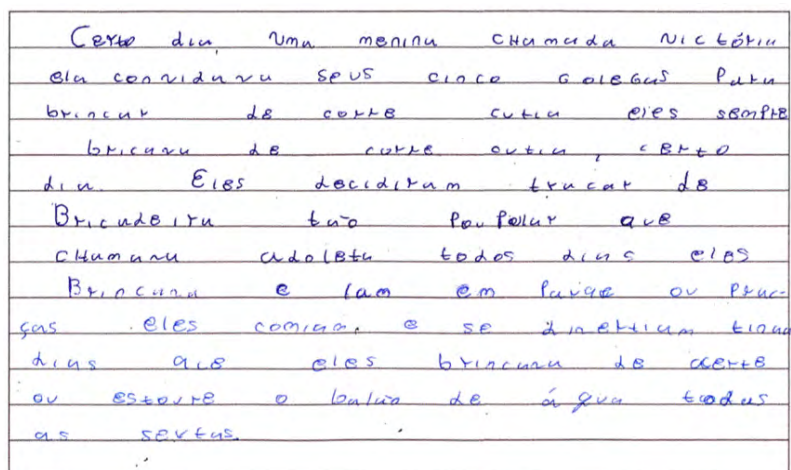 Certo dia, uma menina chamada Victória
ela convidava seus cinco colegas para
brincar de corre cutia eles sempre
bricava de corre cutia, certo
dia. Eles decidiram trucar de
Bricadeira tão poupolar que
chamava adoleta todos dias eles
Brincava e iam em parqe ou prac-
ças eles comiam, e se divertiam tinha
dias que eles brincava de acerte
ou estoure o balão de água toodas
as sextas.